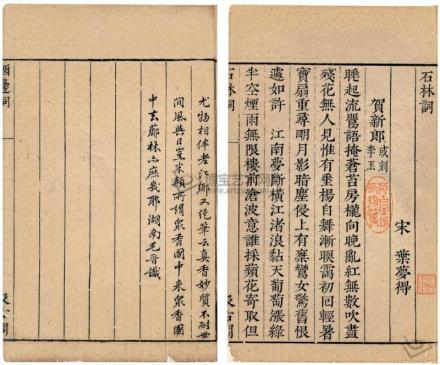 石林詞
宋 葉夢得
賀新郎 或刻李玉
睡起流鶯語掩蒼苔房櫳向晚亂紅無數吹盡
殘花無人見惟有垂楊自舞漸暖靄初回輕暑
寶扇重尋明月影暗塵侵上有乘鸞女驚舊恨
遽如許 江南夢斷橫江渚浪黏天葡萄漲綠
半空煙雨無限樓前滄波意誰採蘋花寄取但
石林詞
汲古閣
尤物相伴老江鄉又絕筆云真香妙質不耐世
間風與日寔所謂眾香國中來眾香國
中去薌林亦庶幾耶湖南毛晉識
酒邊詞
汲古閣